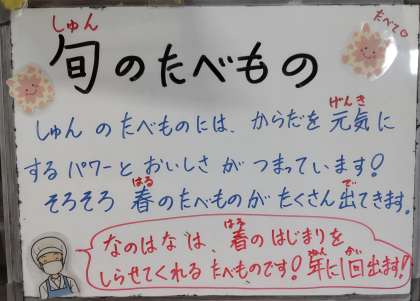 しゅん
たべてね
旬のたべもの
しゅんのたべものには、からだを元気に
げんき
するパワーとおいしさがつまっています!
はる
で
そろそろ春のたべものがたくさん出てきます。
はる
なのはなは、春のはじまりを
しらせてくれるたべものです!年に1回出ます!